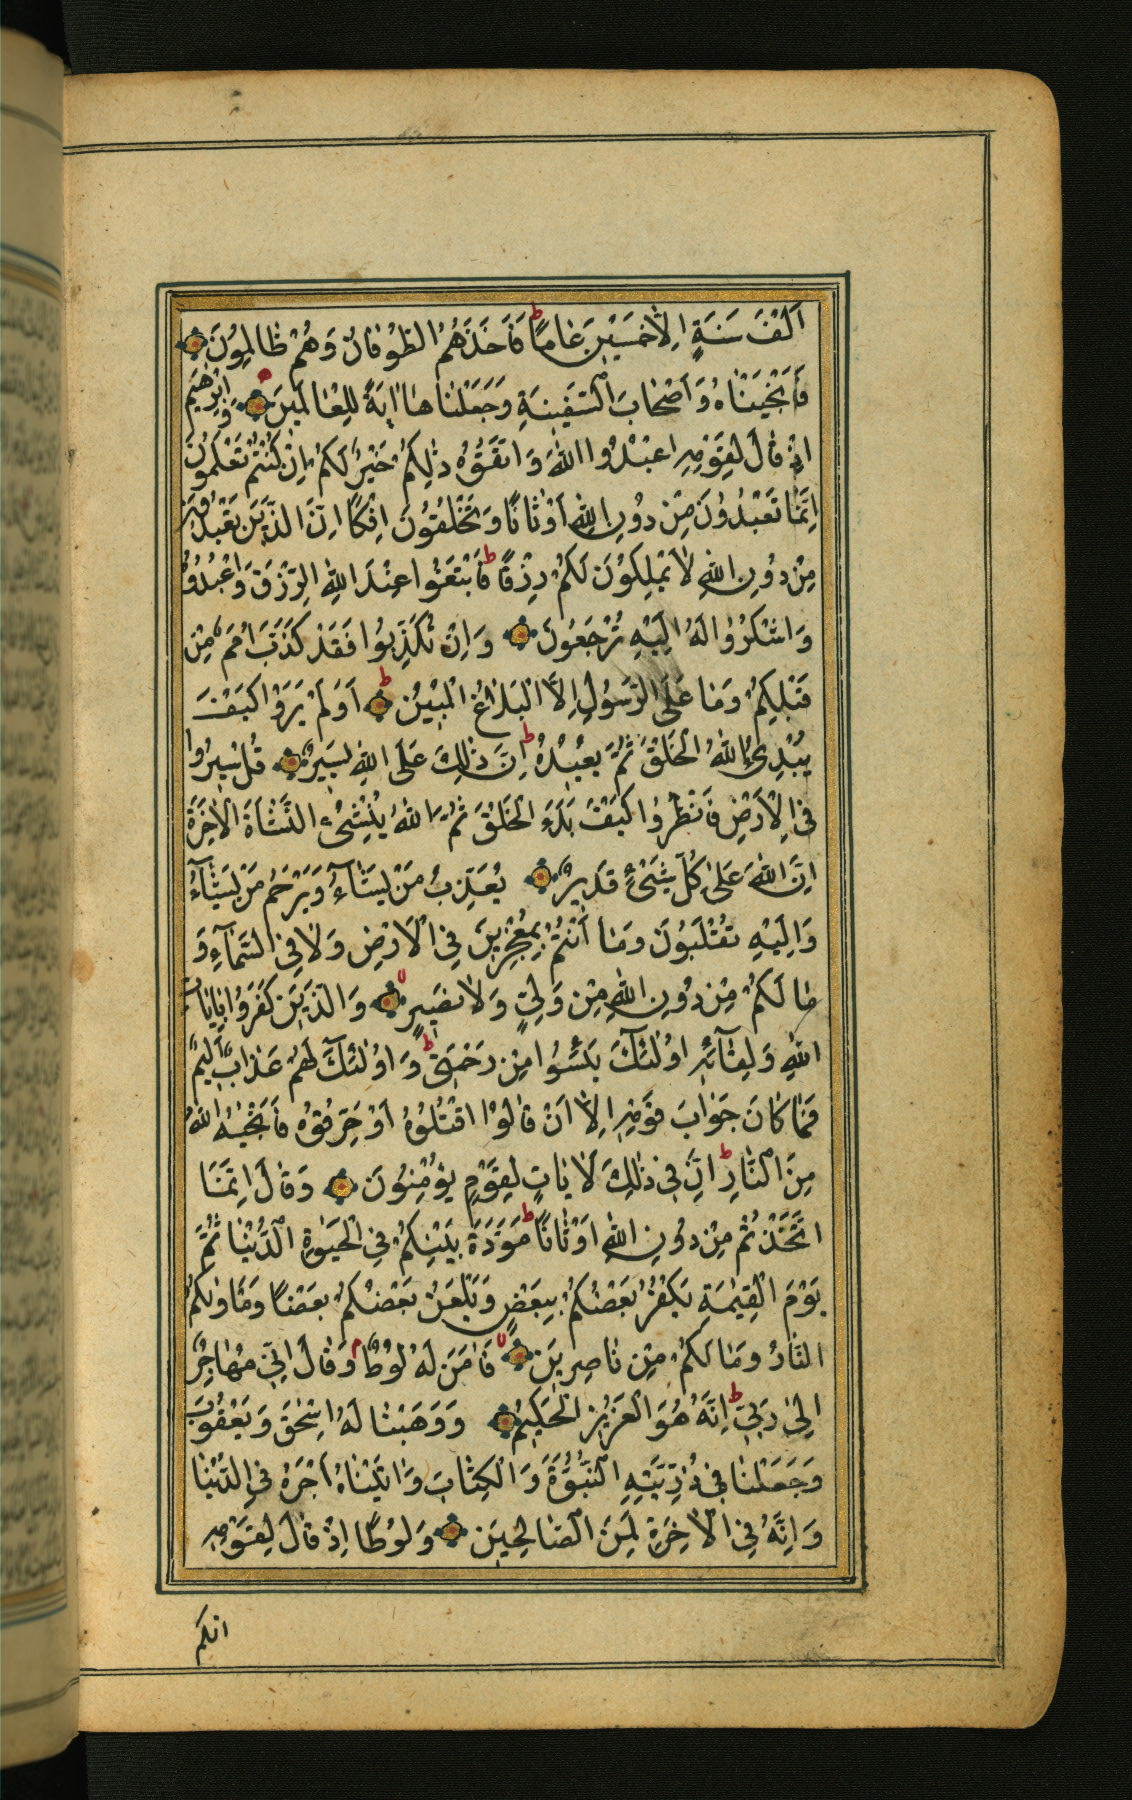 اَلْفَ سَنَةٍ اِلَّا خَمْسِيْنَ عَامًا ط فَاَخَذَهُمُ الطُّوْفَانُ وَهُمْ ظَالِمُوْنَ
فَاَنْجَيْنَاهُ وَاَصْحَابَ السَّفِيْنَةِ وَجَعَلْنَاهَا اٰيَةً لِلْعَالَمِيْنَ وَاِبْرٰهِيْمَ
اِذْ قَالَ لِقَوْمِهِ اعْبُدُوا اللّٰهَ وَاتَّقُوْهُ ذٰلِكُمْ خَيْرٌ لَكُمْ اِنْ كُنْتُمْ تَعْلَمُوْنَ
اِنَّمَا تَعْبُدُوْنَ مِنْ دُوْنِ اللّٰهِ اَوْثَانًا وَتَخْلُقُوْنَ اِفْكًا اِنَّ الَّذِيْنَ تَعْبُدُوْنَ
مِنْ دُوْنِ اللّٰهِ لَا يَمْلِكُوْنَ لَكُمْ رِزْقًا ط فَابْتَغُوْا عِنْدَ اللّٰهِ الرِّزْقَ وَاعْبُدُوْهُ
وَاشْكُرُوْا لَهُ اِلَيْهِ تُرْجَعُوْنَ وَاِنْ تُكَذِّبُوْا فَقَدْ كَذَّبَ اُمَمٌ مِنْ
قَبْلِكُمْ وَمَا عَلَى الرَّسُوْلِ اِلَّا الْبَلَاغُ الْمُبِيْنُ ط اَوَلَمْ يَرَوْا كَيْفَ
يُبْدِئُ اللّٰهُ الْخَلْقَ ثُمَّ يُعِيْدُهُ ط اِنَّ ذٰلِكَ عَلَى اللّٰهِ يَسِيْرٌ قُلْ سِيْرُوْا
فِي الْاَرْضِ فَانْظُرُوْا كَيْفَ بَدَءَ الْخَلْقَ ثُمَّ اللّٰهُ يُنْشِئُ النَّشْاَةَ الْاٰخِرَةَ
اِنَّ اللّٰهَ عَلٰى كُلِّ شَيْءٍ قَدِيْرٌ يُعَذِّبُ مَنْ يَشَآءُ وَيَرْحَمُ مَنْ يَشَآءُ
وَاِلَيْهِ تُقْلَبُوْنَ وَمَا اَنْتُمْ بِمُعْجِزِيْنَ فِي الْاَرْضِ وَلَا فِي السَّمَآءِ وَ
مَا لَكُمْ مِنْ دُوْنِ اللّٰهِ مِنْ وَلِيٍّ وَلَا نَصِيْرٍ وَالَّذِيْنَ كَفَرُوْا بِاٰيَاتِ
اللّٰهِ وَلِقَآئِهِ اُولٰئِكَ يَئِسُوْا مِنْ رَحْمَتِي ط وَاُولٰئِكَ لَهُمْ عَذَابٌ اَلِيْمٌ
فَمَا كَانَ جَوَابَ قَوْمِهِ اِلَّا اَنْ قَالُوْا اقْتُلُوْهُ اَوْ حَرِّقُوْهُ فَاَنْجٰيهُ اللّٰهُ
مِنَ النَّارِ ط اِنَّ فِي ذٰلِكَ لَاٰيَاتٍ لِقَوْمٍ يُؤْمِنُوْنَ وَقَالَ اِنَّمَا
اتَّخَذْتُمْ مِنْ دُوْنِ اللّٰهِ اَوْثَانًا ط مَوَدَّةَ بَيْنِكُمْ فِي الْحَيٰوةِ الدُّنْيَا ثُمَّ
يَوْمَ الْقِيٰمَةِ يَكْفُرُ بَعْضُكُمْ بِبَعْضٍ وَيَلْعَنُ بَعْضُكُمْ بَعْضًا وَمَاْوٰيكُمُ
النَّارُ وَمَا لَكُمْ مِنْ نَاصِرِيْنَ فَاٰمَنَ لَهُ لُوْطٌ م وَقَالَ اِنِّي مُهَاجِرٌ
اِلٰى رَبِّي ط اِنَّهُ هُوَ الْعَزِيْزُ الْحَكِيْمُ وَوَهَبْنَا لَهُ اِسْحٰقَ وَيَعْقُوْبَ
وَجَعَلْنَا فِي ذُرِّيَّتِهِ النُّبُوَّةَ وَالْكِتَابَ وَاٰتَيْنَاهُ اَجْرَهُ فِي الدُّنْيَا
وَاِنَّهُ فِي الْاٰخِرَةِ لَمِنَ الصَّالِحِيْنَ وَلُوْطًا اِذْ قَالَ لِقَوْمِهِ
انكم